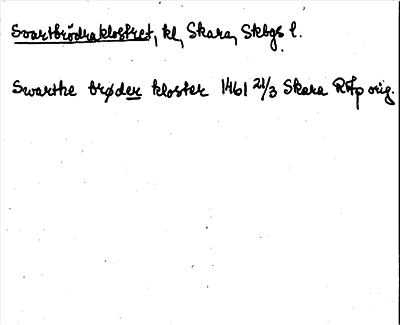 Svartbrödraklostret, kl, Skara, Skbgs l.
Swarthe brøder kloster 1461 21/3 Skara RAp orig.